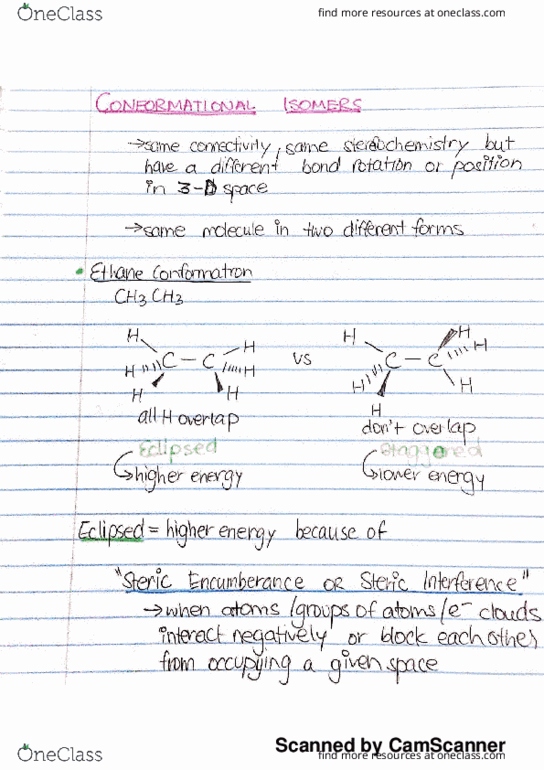 OneClass
find more resources at oneclass.com
CONFORMATIONAL ISOMERS
→same connectivity, same stereochemistry but
have a different bond rotation or position
in 3-D space
→same molecule in two different forms
• Ethane Conformation
CH3 CH3
H H H H
C - C vs C - C
H H H H
H H H H
all H overlap don't overlap
Eclipsed Staggered
↳higher energy ↳lower energy
Eclipsed = higher energy because of
"Steric Encumberance OR Steric Interference"
→when atoms/groups of atoms/e- clouds
interact negatively or block each other
from occupying a given space
Scanned by CamScanner
OneClass
find more resources at oneclass.com